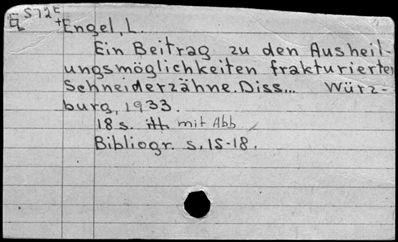 S72E
+Engel, L.
Ein Beitrag zu den Ausheil-
ungsmöglichkeiten frakturierter
Schneiderzähne. Diss... Würz-
burg, 1933.
18 s. mit Abb.
Bibliogr. s. 15-18.